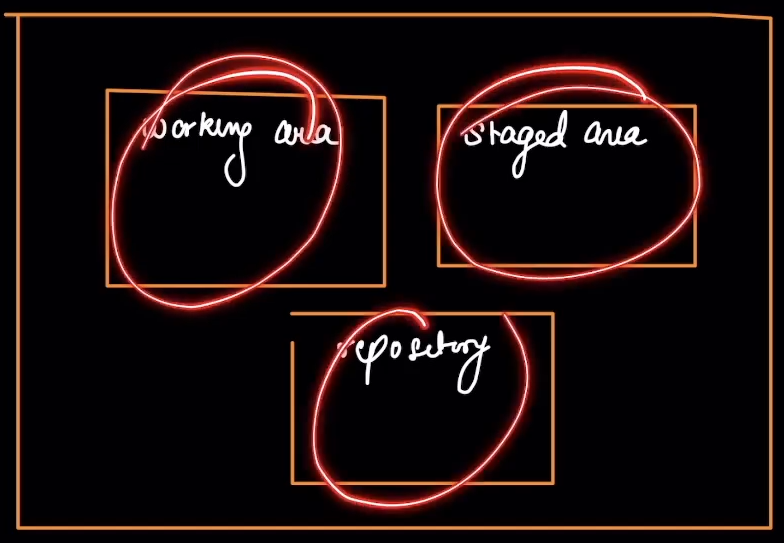 working area
staged area
repository